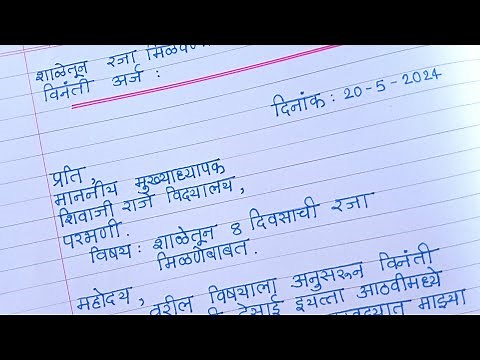 शाळेतून रजा मिळण
विनंती अर्ज :
दिनांक : 20-5-2024
प्रति,
माननीय मुख्याध्यापक
शिवाजी राजे विदयालय,
परभणी.
विषय : शाळेतून 8 दिवसाची रजा
मिळणेबाबत.
महोदय,
वरील विषयाला अनुसरून विनंती
देसाई इयत्ता आठवीमध्ये
माझ्या